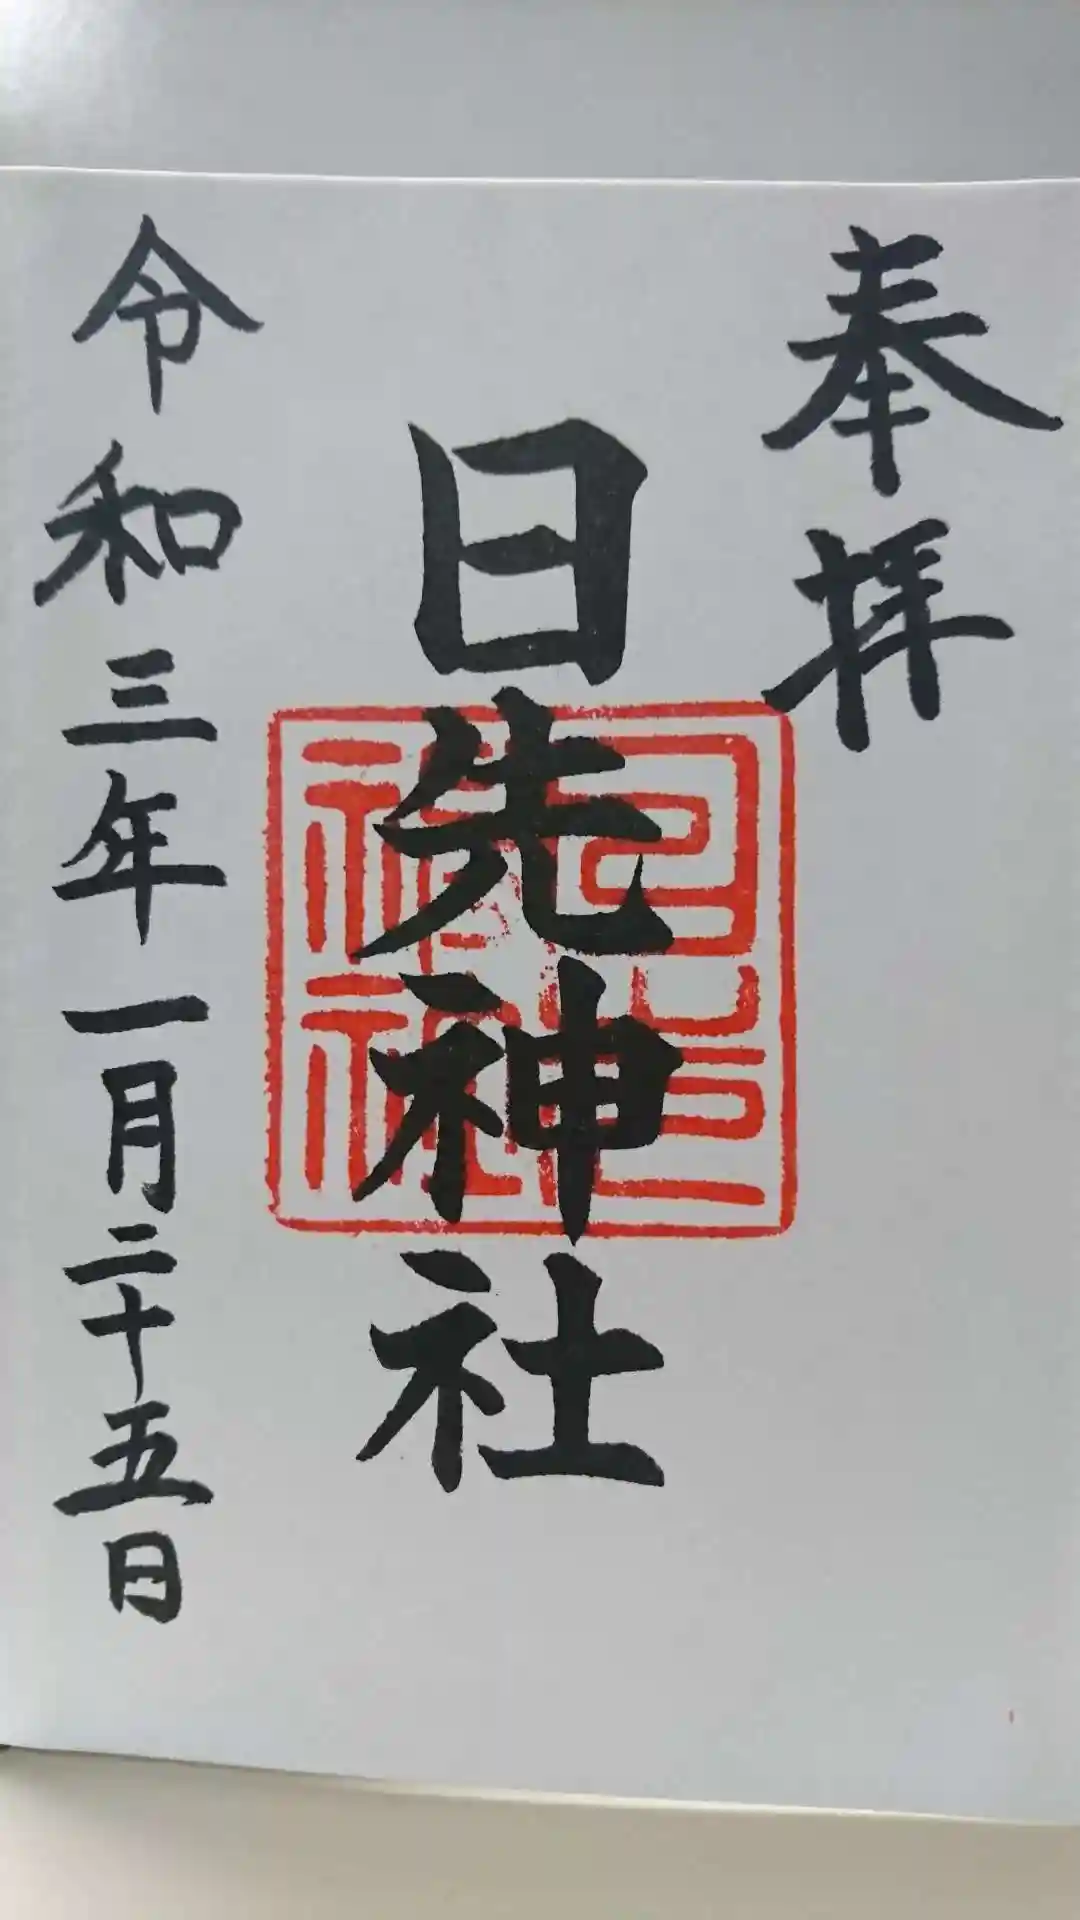 奉拝
日先神社
令和三年一月二十五日